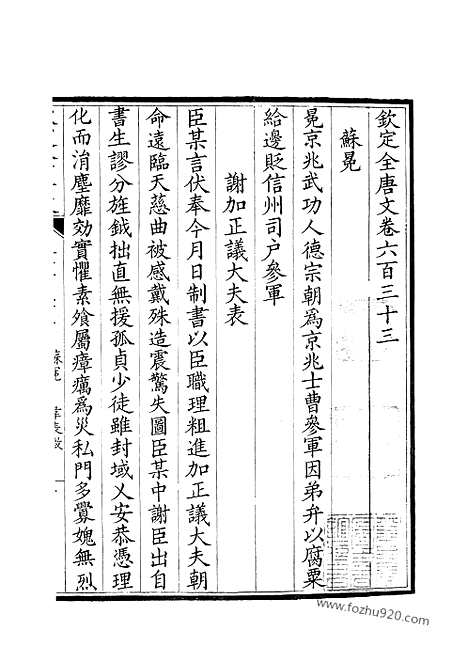 欽定全唐文卷六百三十三
蘇冕
冕京兆武功人德宗朝為京兆士曹參軍因弟弁以腐粟
給邊貶信州司户參軍
謝加正議大夫表
臣某言伏奉今月日制書以臣職理粗進加正議大夫朝
命遠臨天慈曲被感戴殊造震驚失圖臣某中謝臣出自
書生謬分旌鉞拙直無援孤貞少徒雖封域乂安恭憑理
化而消塵靡効實懼素飱屬瘴癘為災私門多釁媿無烈
蘇冕
www.fozhu920.com